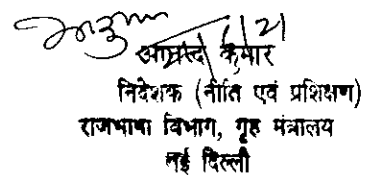 आनन्द कुमार
निदेशक (नीति एवं प्रशिक्षण)
राजभाषा विभाग, गृह मंत्रालय
नई दिल्ली